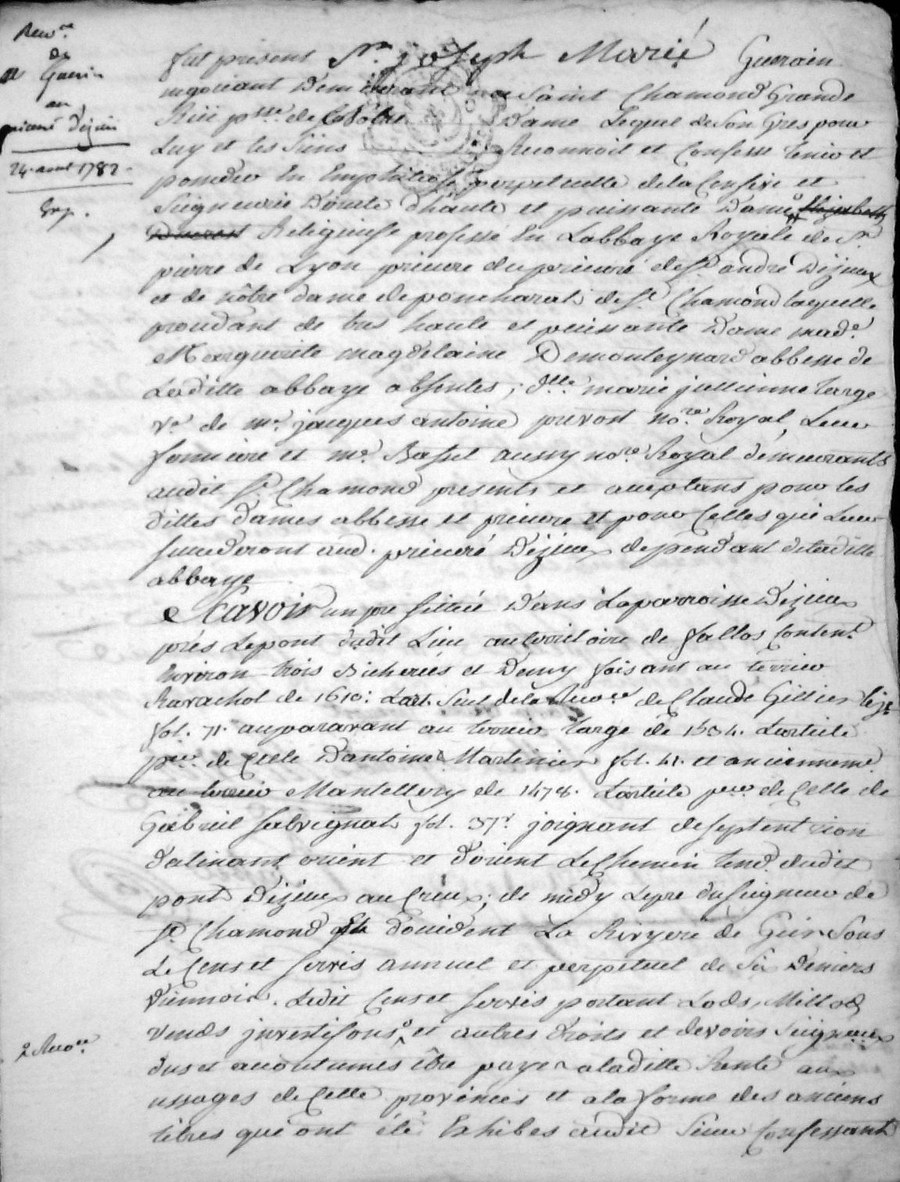 Reco.ce
de
Guerin
au
prieuré d'izieu
24. aout 1782.
Exp.
fut présent Sr. joseph Marie Guerain
negotiant Demeurant a Saint Chamond Grande
Rue psse. de Notre Dame Lequel de Son Gres pour
Luy et les Siens Reconnoit et Confesse tenir et
posseder En Emphiteose perpetuelle de la Censive et
Seigneurie Directe d'haute et puissante Dame Elizabeth
Religieuse professe En Labbaye Royale de St.
pierre de Lyon prieure du prieuré de St. andré Dizieux
et de nôtre dame de poncharat de St. Chamond laquelle
prendant de tres haute et puissante Dame mad.e
Marguerite magdelaine Demonteynard abbesse de
Laditte abbaye absentes, dlle. marie jullienne large
ve. de me. jacques antoine prevost no.re Royal, Leur
fermiere et me. Basset aussy no.re Royal demeurants
audit St. Chamond presents et aceptans pour les
dittes dames abbesse et prieure et pour Celles que Leur
succederont aud. prieuré Dizieux dependant de laditte
abbaye
Scavoir un pre sittué Dans La parroisse Dizieux
près Le pont dudit Lieu au territoire de fallos Conten.t
Environ trois Bicherées et Demy faisant au terrier
Ravachol de 1610: Lart. Suit de la Reco.ce de Claude Gillier
fol. 71. auparavant au terrier large de 1534. Larticle
p.er de Celle D'antoine Martinier fol. 41. et anciennem.t
au terrier Mantellery de 1478. Larticle p.er de Celle de
Gabriel Salvignat fol. 37. joignant de septentrion
d'alinant orient et d'orient Le Chemin tend.t dudit
pont Dizieux au Creux; de midy Le pre du Seigneur de
St. Chamond et d'occident La Rivyere de Gier Sous
Le Cens et Servis annuel et perpetuel de Six Deniers
Viennois. Ledit Cens et Servis portant Lods, Millods
vends, investison et autres droits et devoirs Seigneuriaux
dus et acoutumes être payé a laditte Rente aux
2 Reco.ce
usages de Cette province et a la forme des anciens
titres que ont été Exhibes audit Sieur Confessant